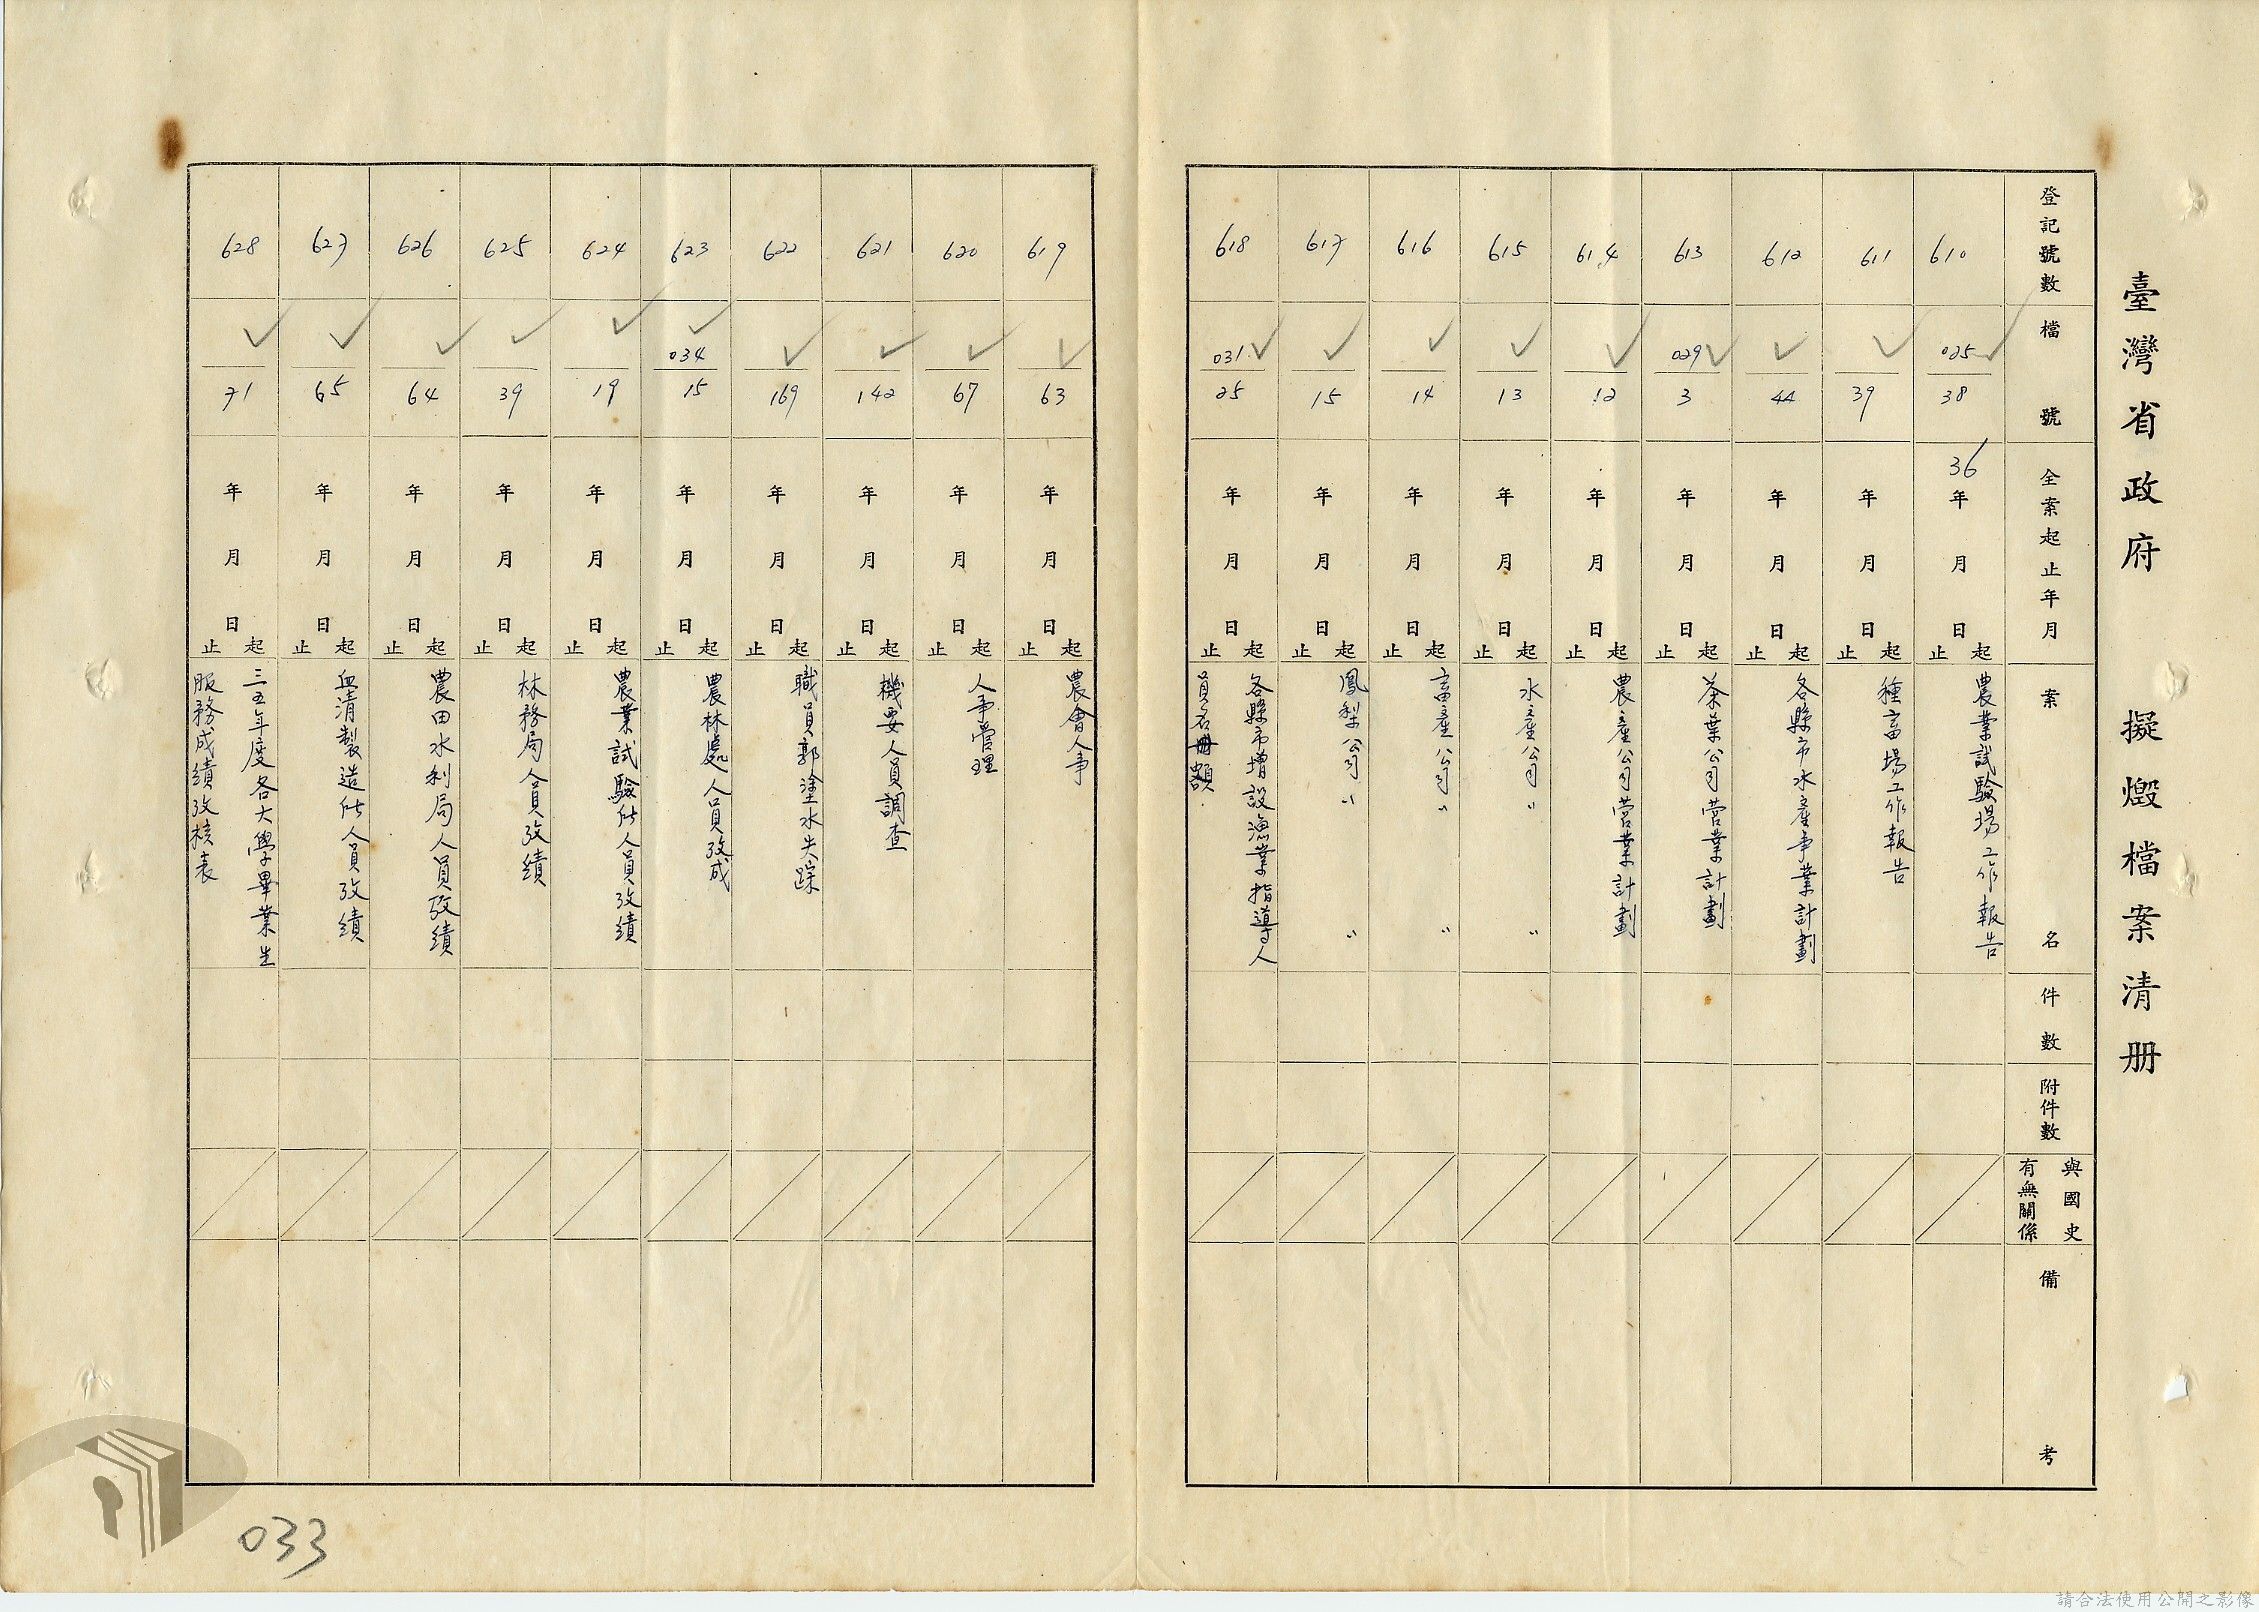 臺灣省政府 擬燬檔案清册
登記號數 檔號 全案起止年月 案名 件數 附件數 與國史有無關係 備考
610 025/38 36年月日起止 農業試驗場工作報告
611 39 年月日起止 種畜場工作報告
612 44 年月日起止 各縣市水產事業計劃
613 029/3 年月日起止 茶葉公司営業計劃
614 12 年月日起止 農產公司営業計劃
615 13 年月日起止 水產公司〃 〃
616 14 年月日起止 畜產公司〃 〃
617 15 年月日起止 鳳梨公司〃 〃
618 031/25 年月日起止 各縣市增設漁業指導人
員名額
619 63 年月日起止 農會人事
620 67 年月日起止 人事管理
621 142 年月日起止 機要人員調查
622 169 年月日起止 職員郭塗水失踪
623 034/15 年月日起止 農林處人員攷成
624 19 年月日起止 農業試驗所人員攷績
625 39 年月日起止 林務局人員攷績
626 64 年月日起止 農田水利局人員攷績
627 65 年月日起止 血清製造所人員攷績
628 71 年月日起止 三五年度各大學畢業生
服務成績攷核表
033
請合法使用公開之影像